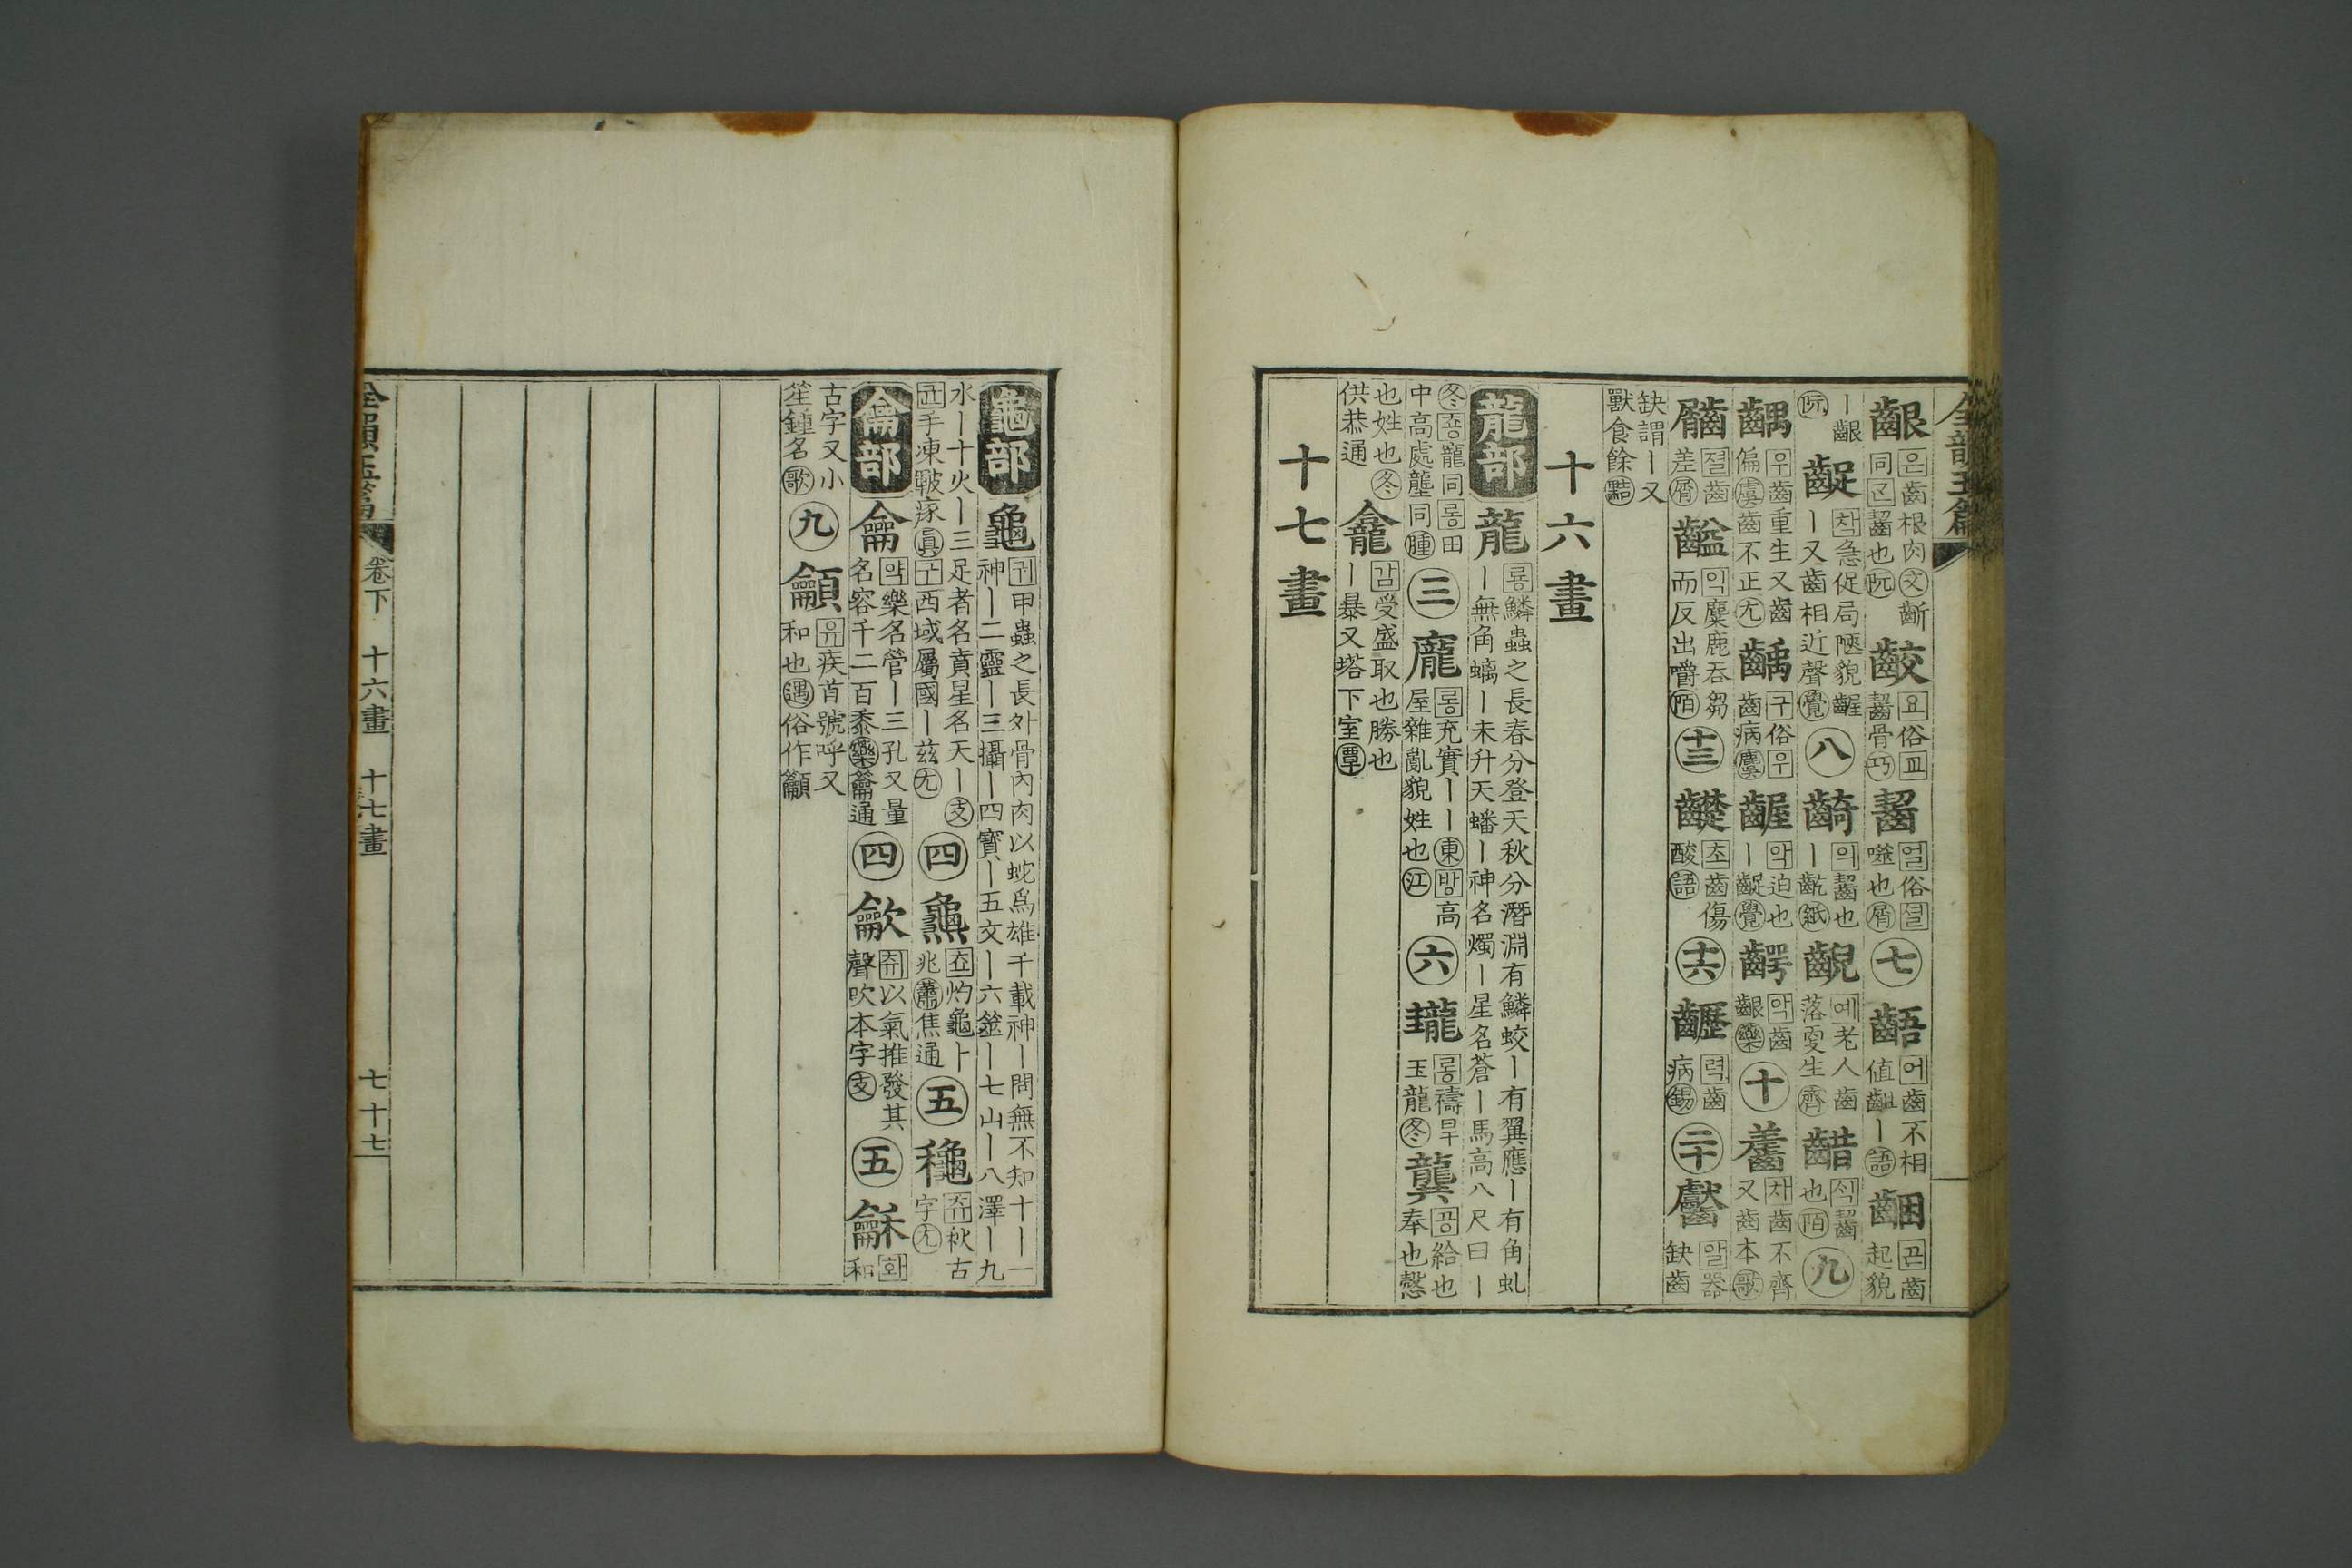 全韻玉篇
齦 은 齒根肉 文 齗同 곤 齧也 阮 齩 요 俗 교 齧骨 巧 齧 얼 俗 셜 噬也 屑 七 齬 어 齒不相値齟丨 語 齫 곤 齒起貌
阮 丨齦 齪 착 急促局陿貌齷丨又齒相近聲 覺 八 齮 의 齧也丨齕 紙 齯 예 老人齒落更生 齊 齰 색 齧也 陌 九
齵 우 齒重生又齒偏 虞 齒不正 尤 齲 구 俗 우 齒病 麌 齷 악 迫也丨齪 覺 齶 악 齒齦 藥 十 齹 차 齒不齊又齒本 歌
齃 졀 齒差 屑 齸 익 麋鹿呑芻而反出嚼 陌 十三 齼 초 齒傷酸 語 十六 齾 력 齒病 錫 二十 齾 알 器缺齒
缺謂丨又獸食餘 黠
十六畫
龍部 龍 룡 鱗蟲之長春分登天秋分潛淵有鱗蛟丨有翼應丨有角虬丨無角螭丨未升天蟠丨神名燭丨星名蒼丨馬高八尺曰丨
冬 춍 寵同 롱 田中高處壟同 腫 三 龐 롱 充實丨丨 東 방 高屋雜亂貌姓也 江 六 瓏 롱 禱旱玉龍 冬 龔 공 給也奉也愨
也姓也 冬 供恭通 龕 감 受盛取也勝也丨暴又塔下室 覃
十七畫
龜部 龜 귀 甲蟲之長外骨內肉以蛇爲雄千載神丨問無不知十丨一神丨二靈丨三攝丨四寶丨五文丨六筮丨七山丨八澤丨九
水丨十火丨三足者名賁星名天丨 支 균 手凍皸瘃 眞 구 西域屬國丨玆 尤 四 龜 쵸 灼龜卜兆 蕭 焦通 五 龝 츄 秋古字 尤
龠部 龠 약 樂名管丨三孔又量名容千二百黍 藥 籥通 四 龡 취 以氣推發其聲吹本字 支 五 龢 화 和
古字又小笙鍾名 歌 九 龥 유 疾首號呼又和也 遇 俗作籲
全韻玉篇 卷下 十六畫 十七畫 七十七